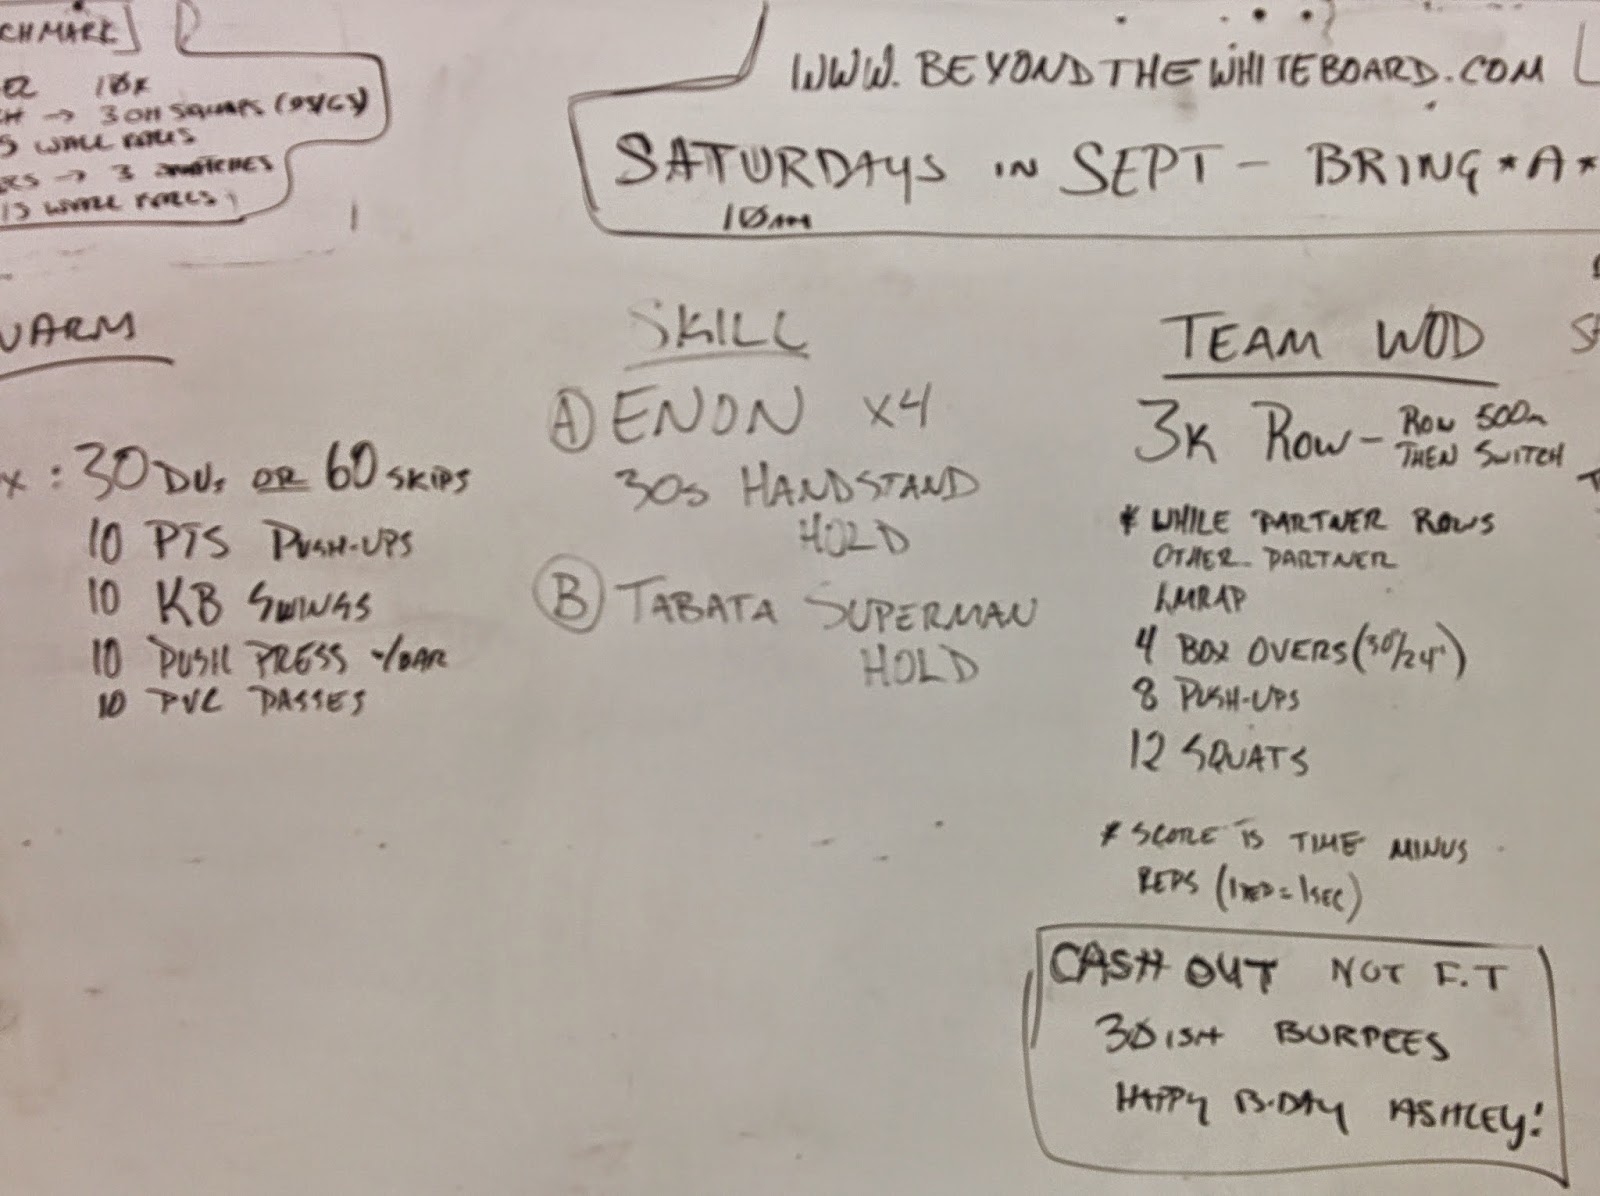 CHMARK]
10K
→ 3 OH SQUATS (95/65)
5 WALL BALLS
→ 3 SNATCHES
15 WALL BALLS
WWW.BEYONDTHEWHITEBOARD.COM
SATURDAYS IN SEPT - BRING *A*
10AM
WARM
X : 30 DUs OR 60 SKIPS
10 PTS PUSH-UPS
10 KB SWINGS
10 PUSH PRESS -/BAR
10 PVC PASSES
SKILL
A ENON X4
30s HANDSTAND
HOLD
B TABATA SUPERMAN
HOLD
TEAM WOD
3K ROW - ROW 500m
THEN SWITCH
* WHILE PARTNER ROWS
OTHER PARTNER
AMRAP
4 BOX OVERS (30"/24")
8 PUSH-UPS
12 SQUATS
* SCORE IS TIME MINUS
REPS (1 REP = 1 SEC)
CASH OUT NOT F.T
30ISH BURPEES
HAPPY B-DAY ASHLEY!